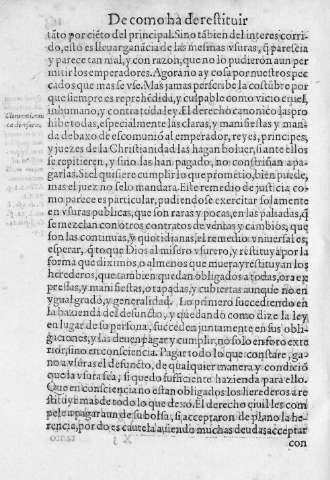 De como ha de restituir
tãto por ciẽto del principal. Sino tãbien del interes corri
do, esto es lleuar ganãcia de las mesmas vsuras, q̃ parescia
y parece tan mal, y con razon, que no lo pudieron aun per
mitir los emperadores. Agora no ay cosa por nuestros pec
cados que mas se vse. Mas jamas perscribe la costũbre por
que siempre es reprehẽdida, y culpable como vicio cruel,
inhumano, y contra toda ley. El derecho canonico las pro
hibe todas, especialmente las claras, y manifiestas y man
da debaxo de excomunió al emperador, reyes, principes,
y juezes de la Christianidad las hagan boluer, si ante ellos
se repitieren, y si no las han pagado, no constriñan a pa-
garlas. Si el quisiere cumplir lo que prometio, bien puede,
mas el juez no se lo mandara. Este remedio de justicia, co
mo parece es particular, pudiendose exercitar solamente
en vsuras publicas, que son raras y pocas, en las paliadas, q̃
se mezclan con otros contratos de ventas y cambios, que
son las continuas, y quotidianas, el remedio vniuersal es,
esperar, q̃ toque Dios al misero vsurero, y restituya por la
forma que diximos, o almenos que muera, y restituyan los
herederos, que tambien quedan obligados a todas, ora ex
pressas, y manifiestas, o tapadas, y cubiertas aunque no en
ygual grado, y generalidad. Lo primero succediendo en
la hazienda del defuncto, y quedando como dize la ley
en lugar de su persona, succeden juntamente en sus obli
gaciones, y las deuen pagar y cumplir, no solo en foro exte
rior, sino en consciencia. Pagar todo lo que constare, ga-
no a vsuras el defuncto, de qualquier manera y condició
que la vsura sea, si quedo sufficiente hazienda para ello.
Que en consciencia no estan obligados los herederos a re
stituyr mas de todo lo que dexo. El derecho ciuil les com
pele a pagar aun de su bolsa, si acceptaron de plano la he-
rencia, por do es cautela auiendo muchas deudas acceptar
con